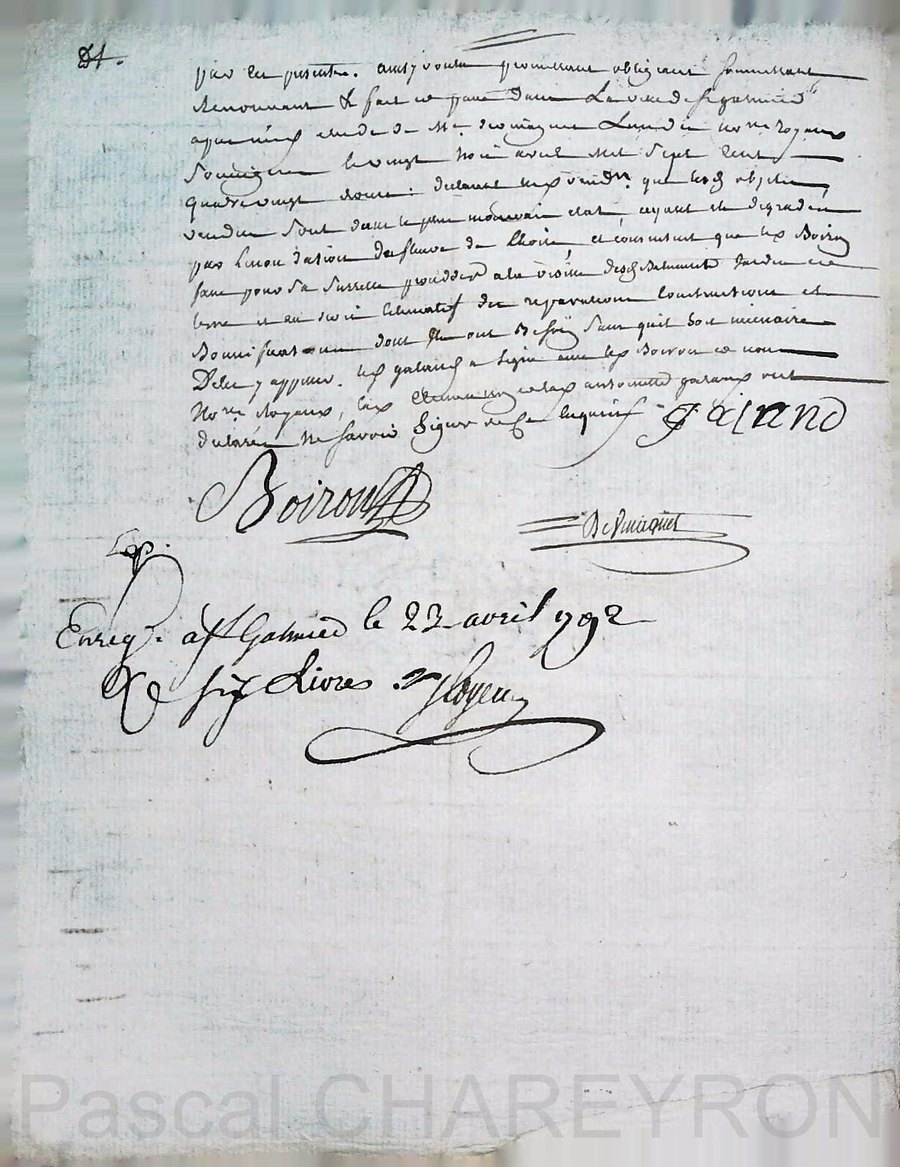 par les présentes. ainsy voulu promettant obligeant soumettant
Renonçant &c fait et passé dans La ville de st galmier
après midy etude de Me. devincquet L'un des nores royaux
soussignés le vingt trois avril mil sept cent
quatre vingt douze: declarant lesd. vendrs que lesd. objets
vendus sont dans le plus mauvais etat, ayant été dégradés
par linondation du fleuve de Loire, et consentent que led. Boiron
fasse pour sa sureté procéder a la visite desd. Batiments jardin et
terre et au devis estimatif des reparations constructions et
Bonnifications dont ils ont Besoin sans quil soit necessaire
De les y appeller. led. galand a signé avec led. Boiron et nous
Nores royaux, lad. et lad. garaux ont
declaré ne savoir signer de ce enquis
galand
Boiron
Devincquet
Exp.
Enregé. à St Galmier le 23 avril 1792
Rç six Livres